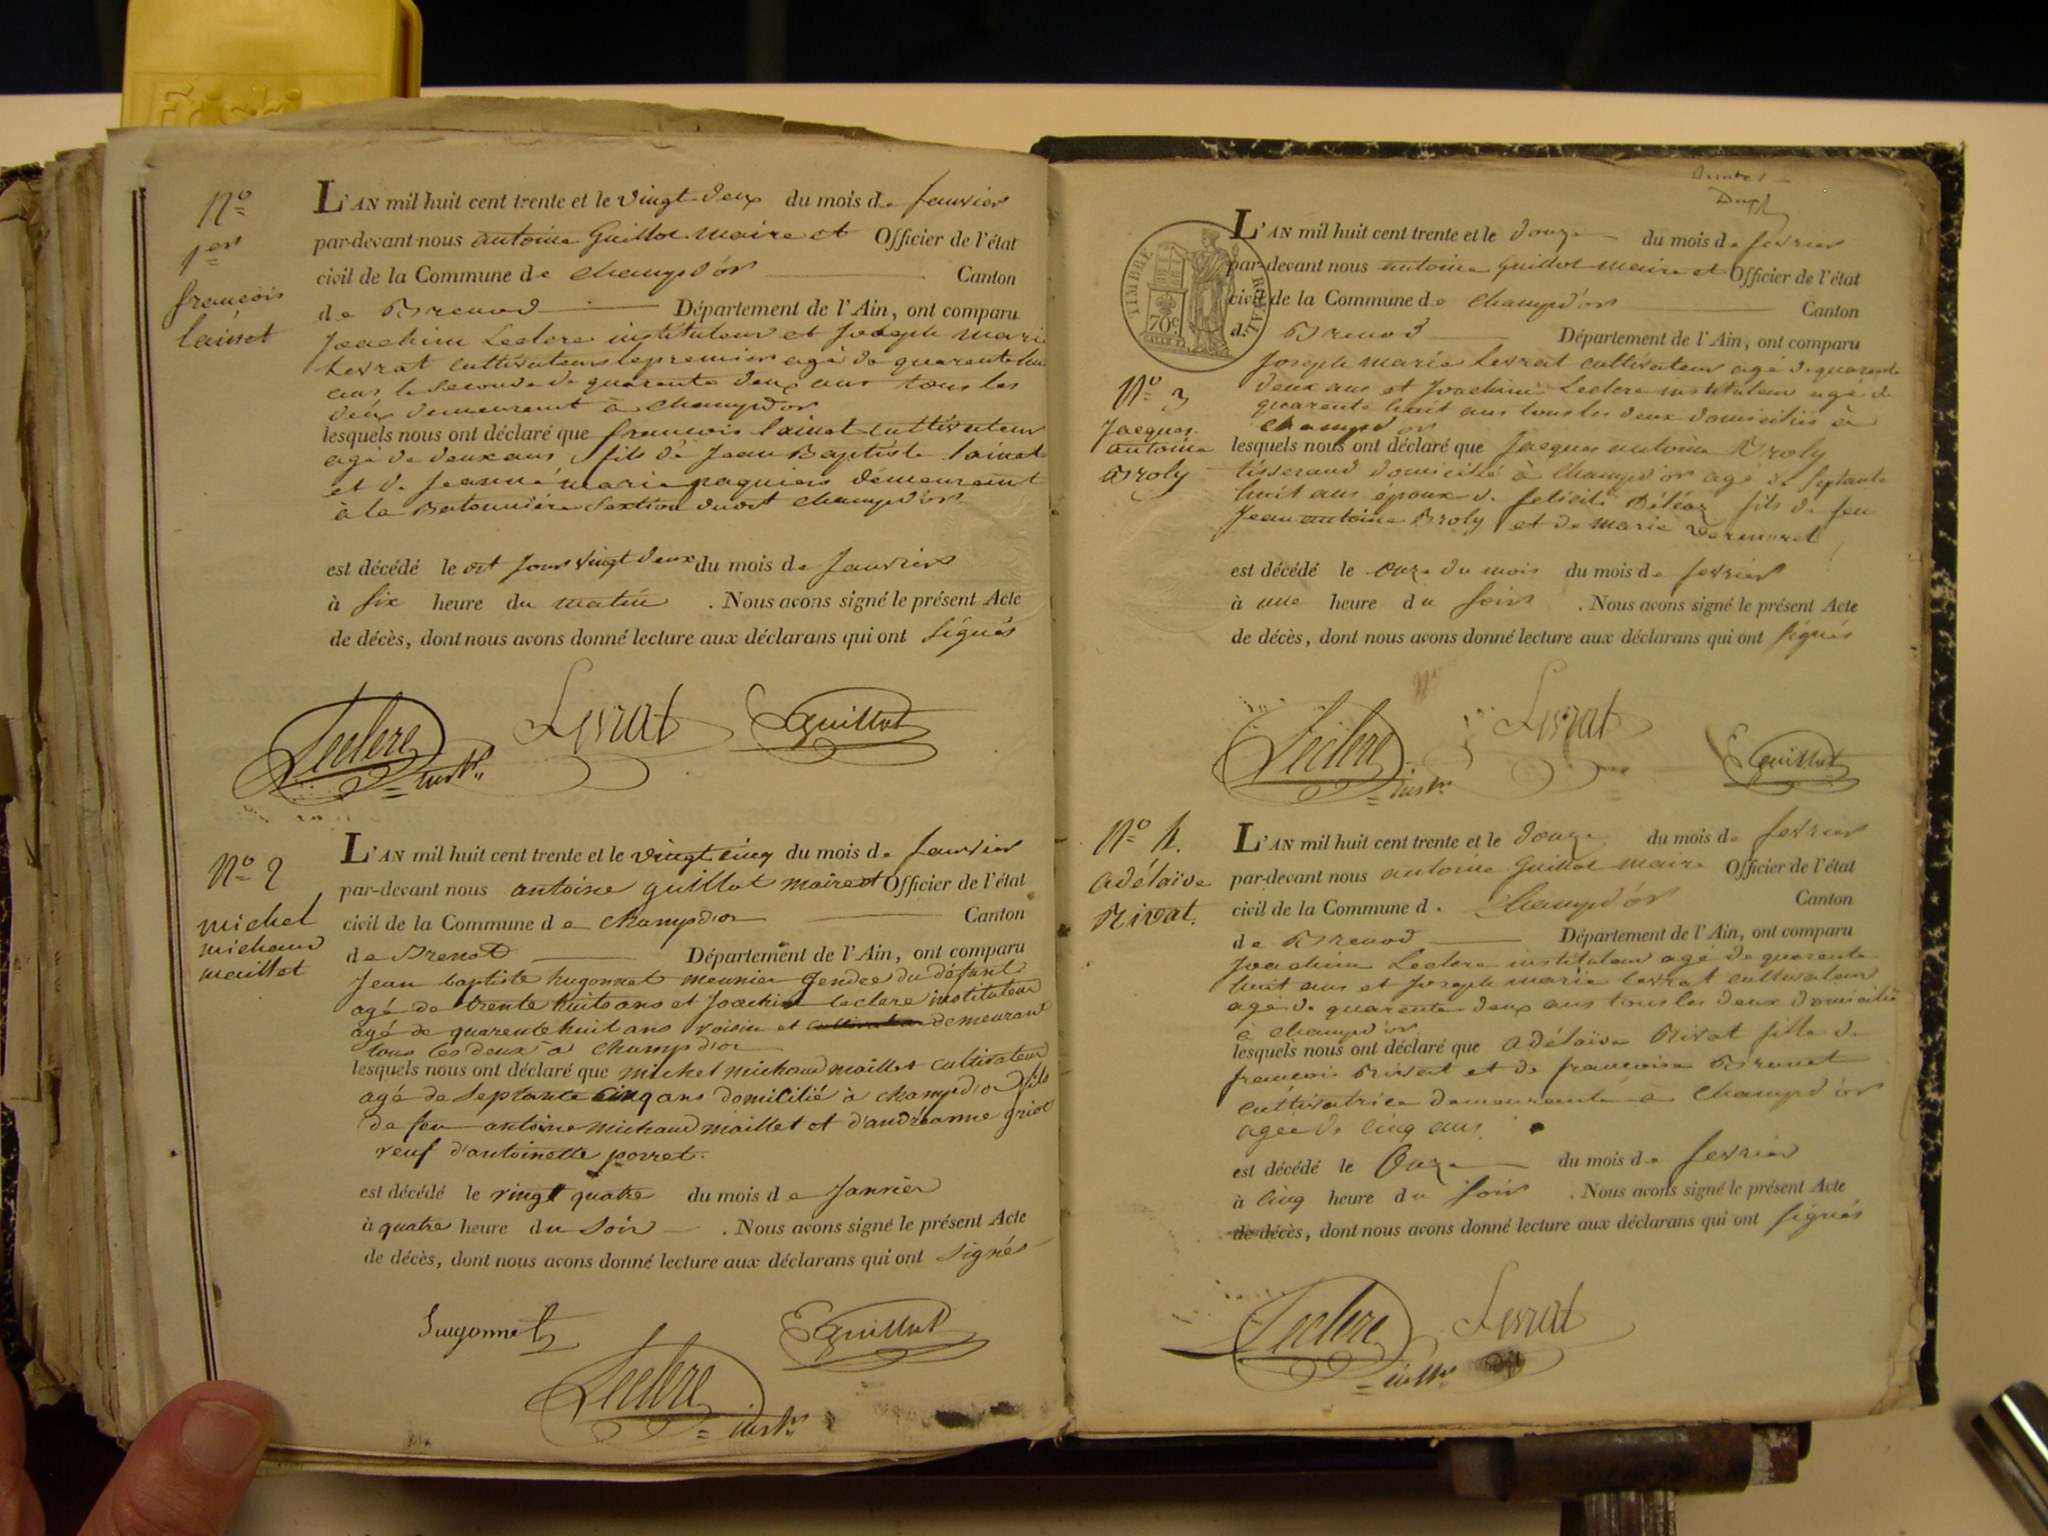 Nº
1er
françois
lainet
L'AN mil huit cent trente et le vingt deux du mois de Janvier
par-devant-nous antoine Guillot maire et Officier de l'état
civil de la Commune de Champd'or Canton
de Brenod Département de l'Ain, ont comparu
Joachim Leclere instituteur et Joseph marie
Levrat cultivateur le premier agé de quarente huit
ans, le seconde de quarente deux ans tous les
deux demeurent à Champd'or
lesquels nous ont déclaré que françois lainet cultivateur
agé de deux ans, fils de Jean Baptiste lainet
et de Jeanne marie paquier demeurent
à la Batonnière Section dudit Champd'or
est décédé le dit Jour vingt deux du mois de Janvier
à six heure du matin . Nous avons signé le présent Acte
de décès, dont nous avons donné lecture aux déclarans qui ont signés
Leclere instr. Levrat Guillot
Nº 2
michel
michaud
maillet
L'AN mil huit cent trente et le vingt cinq du mois de Janvier
par-devant nous antoine guillot maire et Officier de l'état
civil de la Commune de Champdor Canton
de Brenod Département de l'Ain, ont comparu
Jean baptiste hugonnet meunier gendre du défunt
agé de trente huit ans et Joachim leclere instituteur
agé de quarente huit ans voisin et cultivateur demeurant
tous les deux à Champdor
lesquels nous ont déclaré que michel michaud maillet cultivateur
agé de Septante cinq ans domicilié à Champdor fils
de feu antoine michaud maillet et d'andréanne griot
veuf d'antoinette porret.
est décédé le vingt quatre du mois de Janvier
à quatre heure du soir . Nous avons signé le présent Acte
de décès, dont nous avons donné lecture aux déclarans qui ont signés
hugonnet Guillot
Leclere instr.
TIMBRE ROYAL
70c
Nº 3
Jacques
antoine
Broly
L'AN mil huit cent trente et le douze du mois de fevrier
par-devant nous antoine Guillot maire et Officier de l'état
civil de la Commune de Champd'or Canton
d. Brenod Département de l'Ain, ont comparu
Joseph marie Levrat cultivateur agé de quarente
deux ans et Joachim Leclere instituteur agé de
quarente huit ans tous les deux domiciliés à
Champd'or
lesquels nous ont déclaré que Jacques antoine Broly
tisserand domicilié à Champd'or agé de septante
huit ans époux de felicité fils de feu
Jean antoine Broly et de marie Vermorel
est décédé le Onze du mois du mois de fevrier
à une heure du soir . Nous avons signé le présent Acte
de décès, dont nous avons donné lecture aux déclarans qui ont signés
Leclere instr. Levrat Guillot
Nº 4.
adélaïde
Rivat.
L'AN mil huit cent trente et le douze du mois de fevrier
par-devant nous antoine Guillot maire Officier de l'état
civil de la Commune d. Champd'or Canton
de Brenod Département de l'Ain, ont comparu
Joachim Leclere instituteur agé de quarente
huit ans et Joseph marie levrat cultivateur
agé de quarente deux ans tous les deux domicilié
à Champd'or
lesquels nous ont déclaré que adélaïde Rivat fille de
françois Rivat et de françoise Brunet
cultivatrice demeurante à Champd'or
agée de cinq ans.
est décédé le Onze du mois de fevrier
à cinq heure du soir . Nous avons signé le présent Acte
de décès, dont nous avons donné lecture aux déclarans qui ont signés
Leclere instr. Levrat